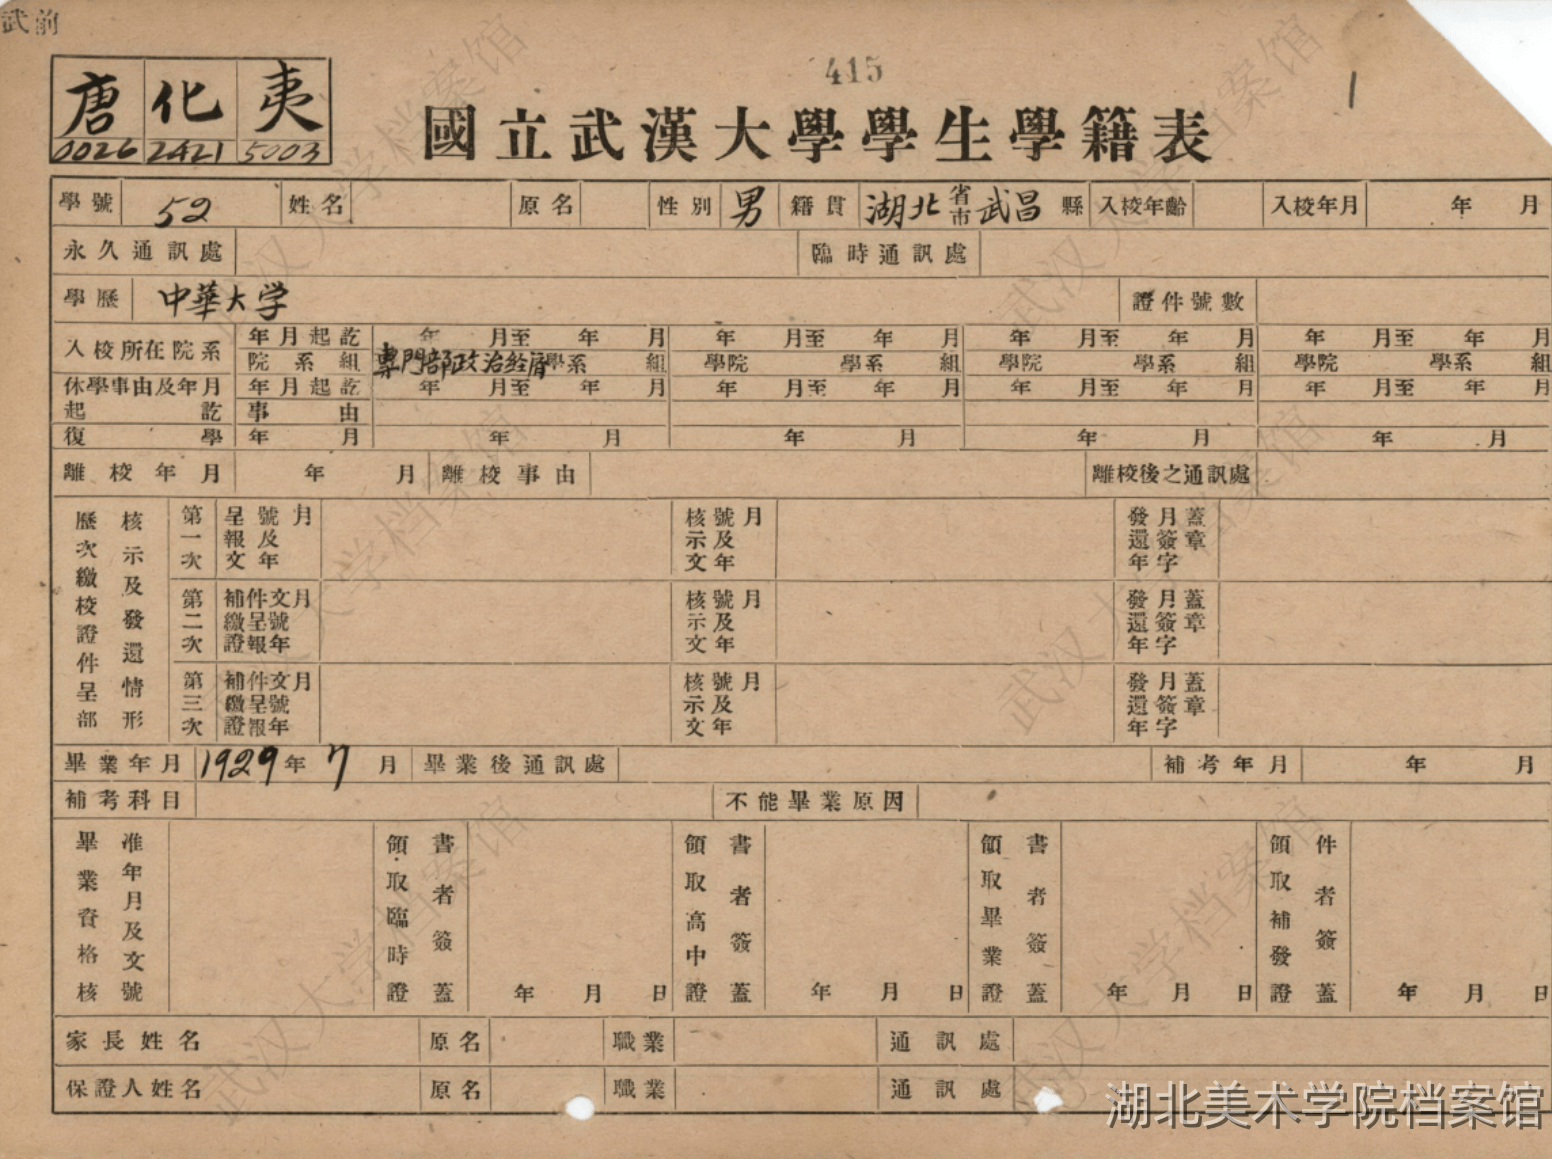 武前
415
唐 化 夷
0026 2421 5003
國立武漢大學學生學籍表
學號 52 姓名 原名 性別 男 籍貫 湖北 省市 武昌 縣 入校年齡 入校年月 年 月
永久通訊處 臨時通訊處
學歷 中華大学 證件號數
入校所在院系 年月起訖 年 月至 年 月 年 月至 年 月 年 月至 年 月 年 月至 年 月
院系組 專門部政治經濟學系 組 學院 學系 組 學院 學系 組 學院 學系 組
休學事由及年月起訖 年月起訖 年 月至 年 月 年 月至 年 月 年 月至 年 月 年 月至 年 月
事由
復學 年 月 年 月 年 月 年 月 年 月
離校年月 年 月 離校事由 離校後之通訊處
歷次繳校證件呈部核示及發還情形
第一次 呈報文號及年月 核示文號及年月 發還年月簽字蓋章
第二次 補繳證件呈報文號年月 核示文號及年月 發還年月簽字蓋章
第三次 補繳證件呈報文號年月 核示文號及年月 發還年月簽字蓋章
畢業年月 1929年 7 月 畢業後通訊處 補考年月 年 月
補考科目 不能畢業原因
畢業資格核准年月及文號 領取臨時證書者簽蓋 年 月 日 領取高中證書者簽蓋 年 月 日 領取畢業證書者簽蓋 年 月 日 領取補發證件者簽蓋 年 月 日
家長姓名 原名 職業 通訊處
保證人姓名 原名 職業 通訊處
武汉大学档案馆
湖北美术学院档案馆